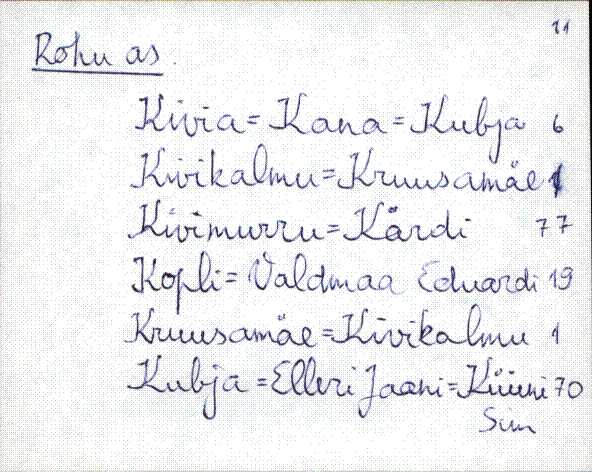 11
Rohu as.
Kivia = Kana = Kubja 6
Kivikalmu = Kruusamäe 1
Kivimurru = Kärdi 77
Kopli = Valdmaa Eduardi 19
Kruusamäe = Kivikalmu 1
Kubja = Elleri Jaani = Küüni 70
Sim